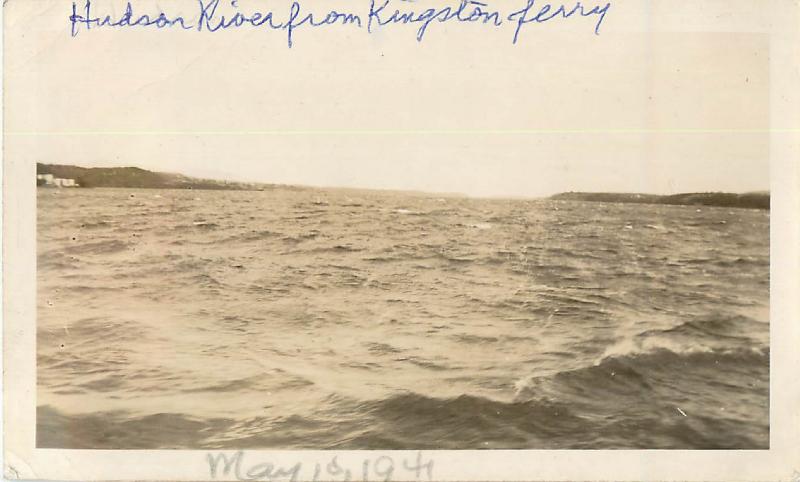 Hudson River from Kingston ferry
May 18, 1941